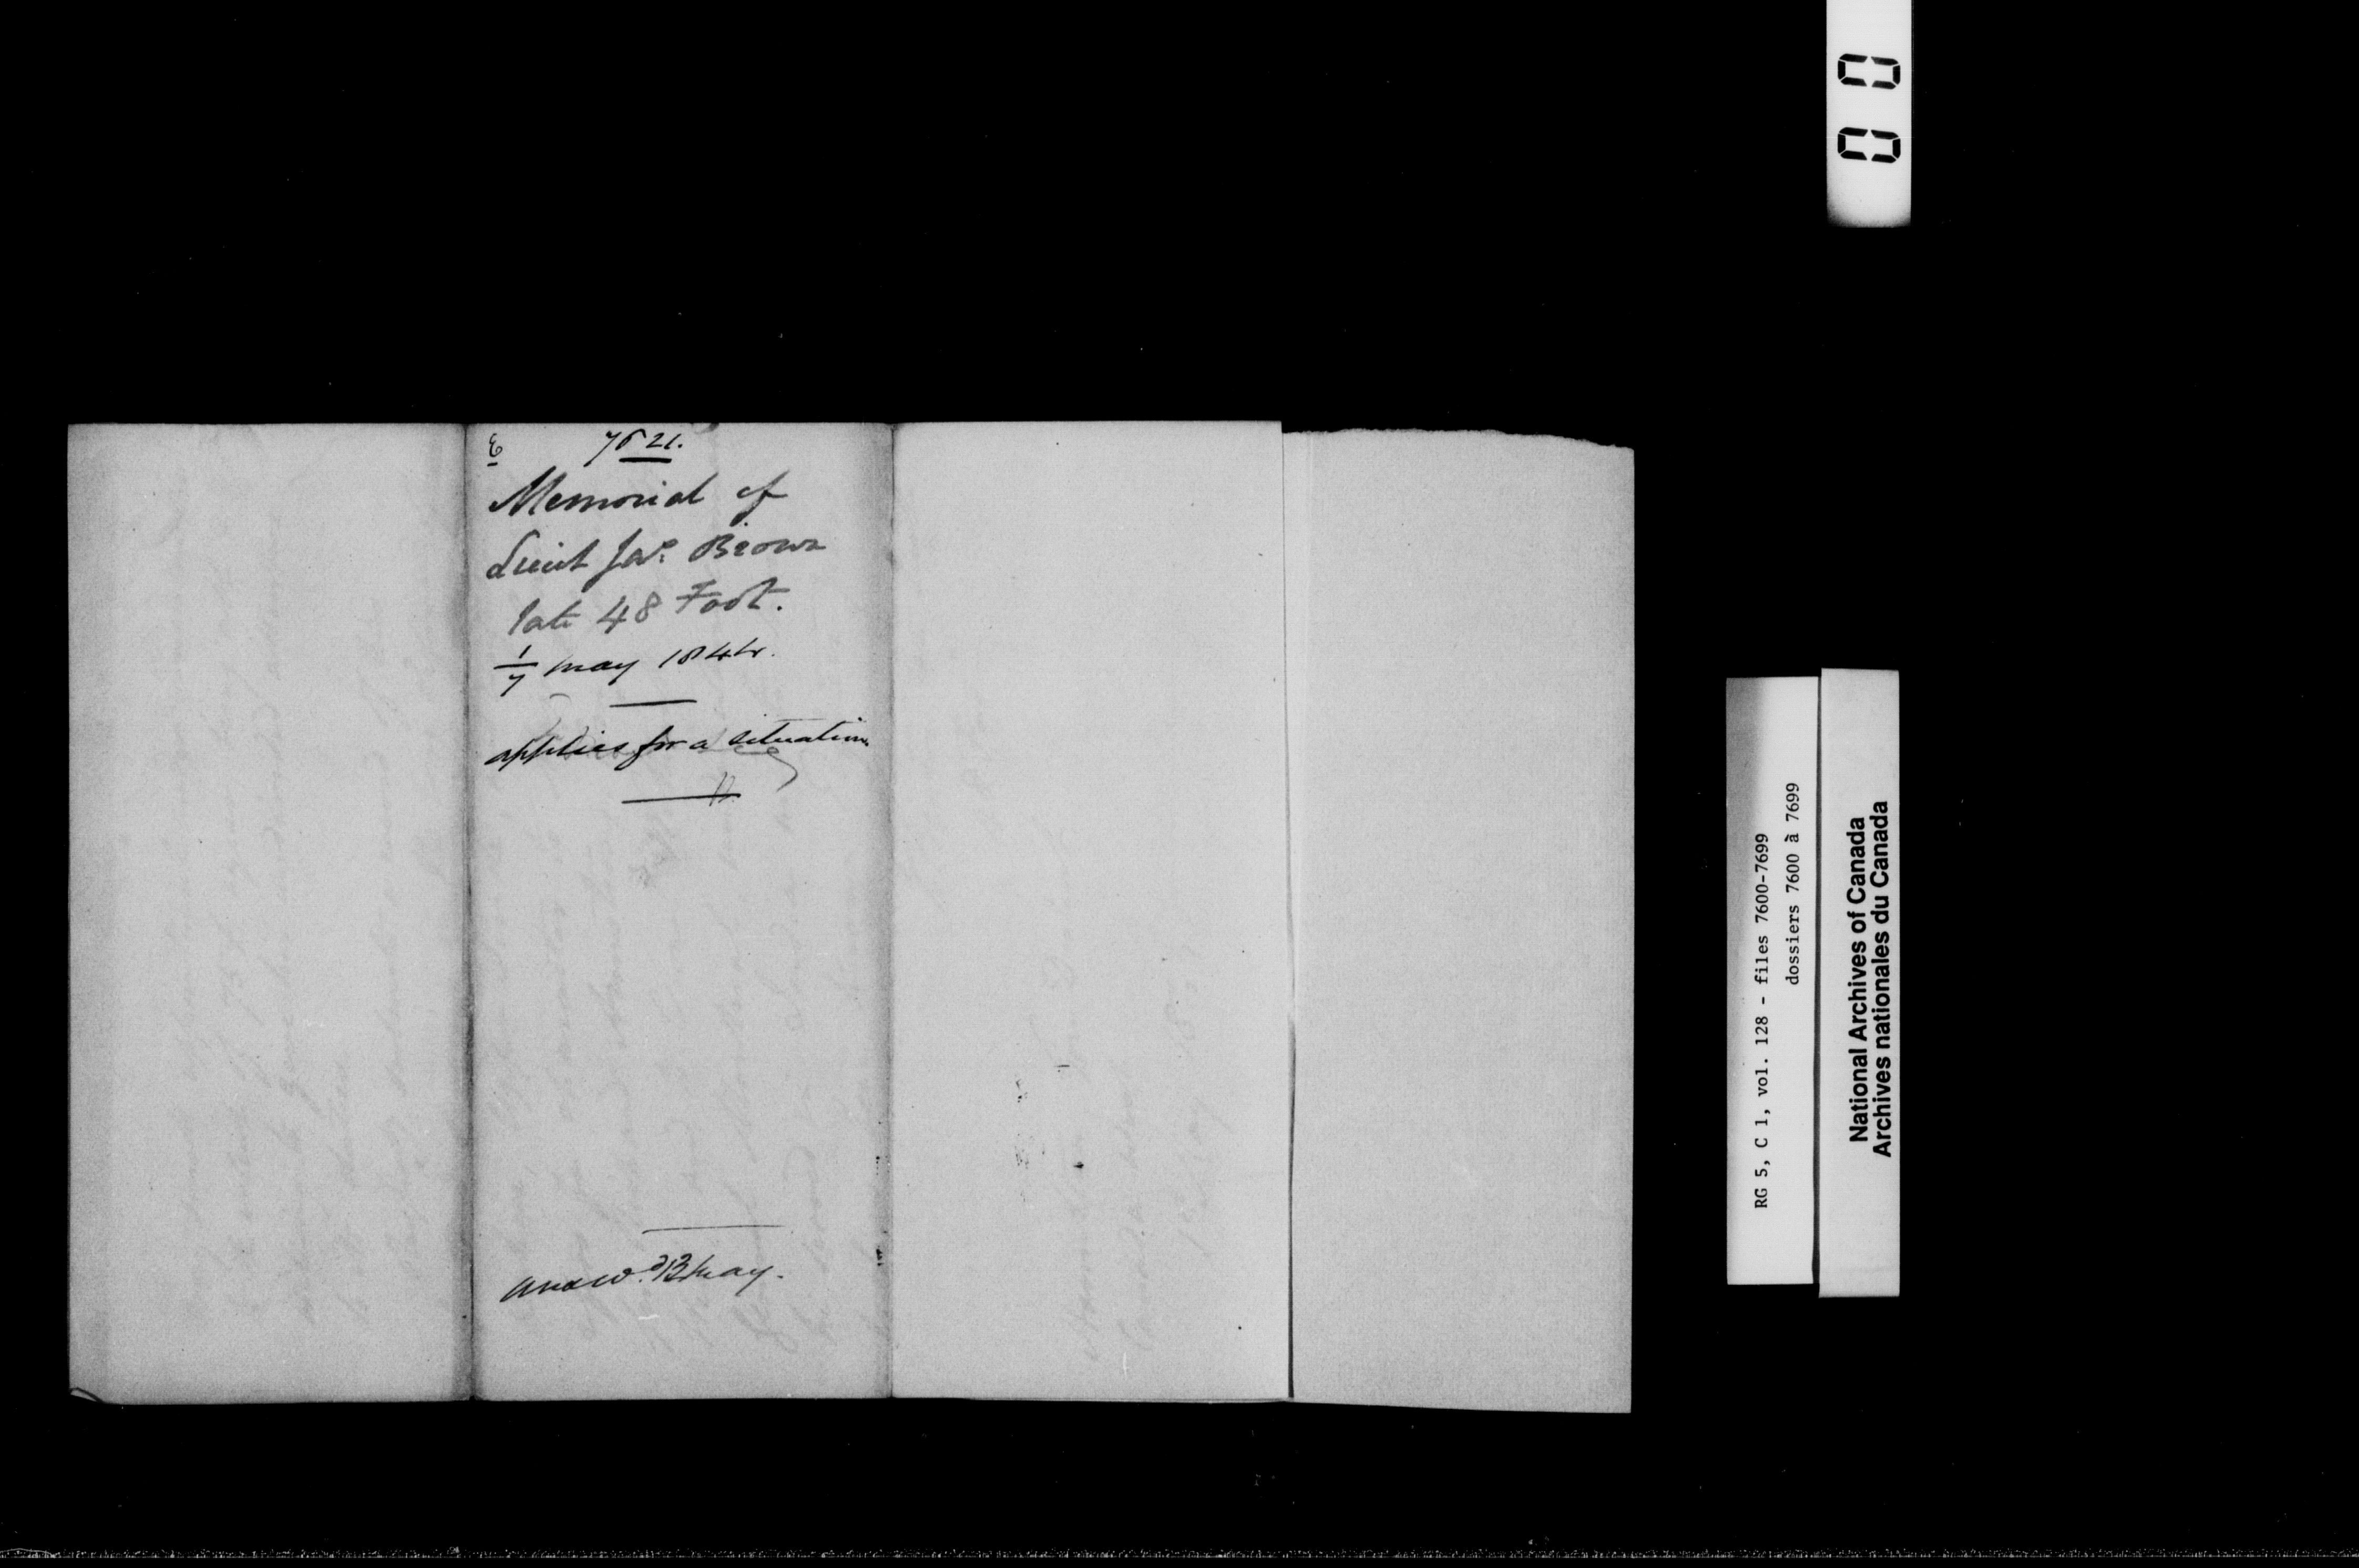 E 7621.
Memorial of
Lieut Jas. Brown
late 48 Foot.
1/7 May 1844.
applies for a situation
answd. 13 May.
00
RG 5, C 1, vol. 128 - files 7600-7699
dossiers 7600 à 7699
National Archives of Canada
Archives nationales du Canada